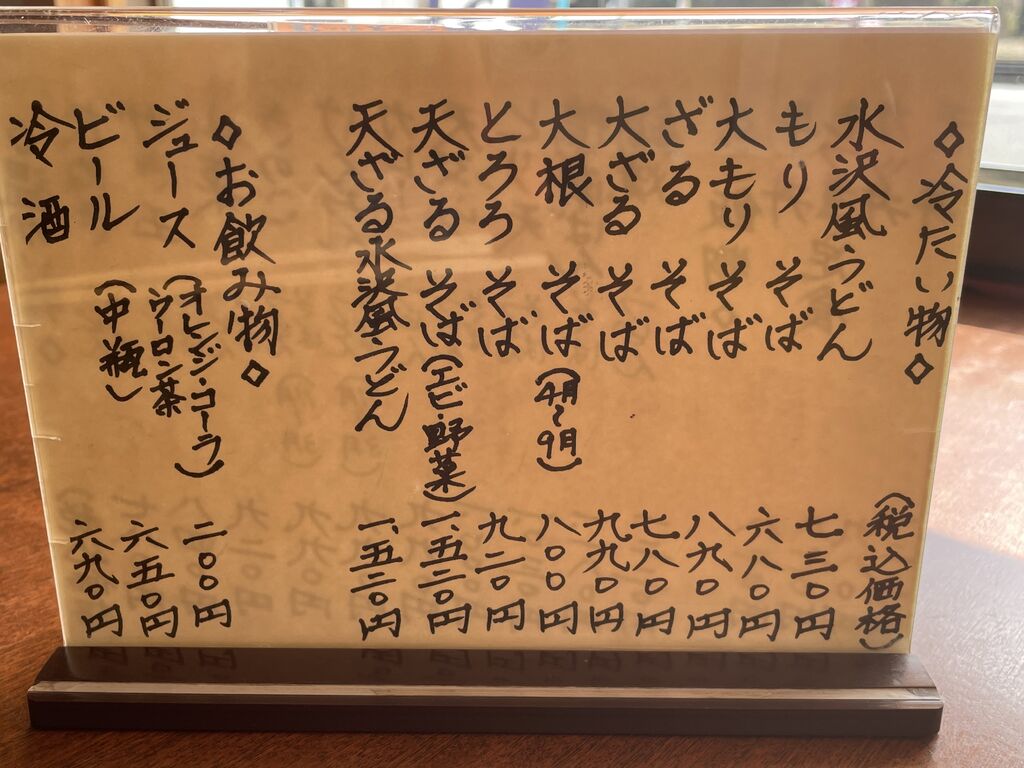 ◇冷たい物◇ (税込価格)
水沢風うどん 七三〇円
もり そば 六八〇円
大もり そば 八九〇円
ざる そば 七八〇円
大ざる そば 九九〇円
大根 そば (4月~9月) 八〇〇円
とろろ そば 九二〇円
天ざる そば (エビ・野菜) 一、五二〇円
天ざる水沢風うどん 一、五二〇円
◇お飲み物◇
ジュース (オレンジ・コーラ) 二〇〇円
ウーロン茶
ビール (中瓶) 六五〇円
冷酒 六九〇円